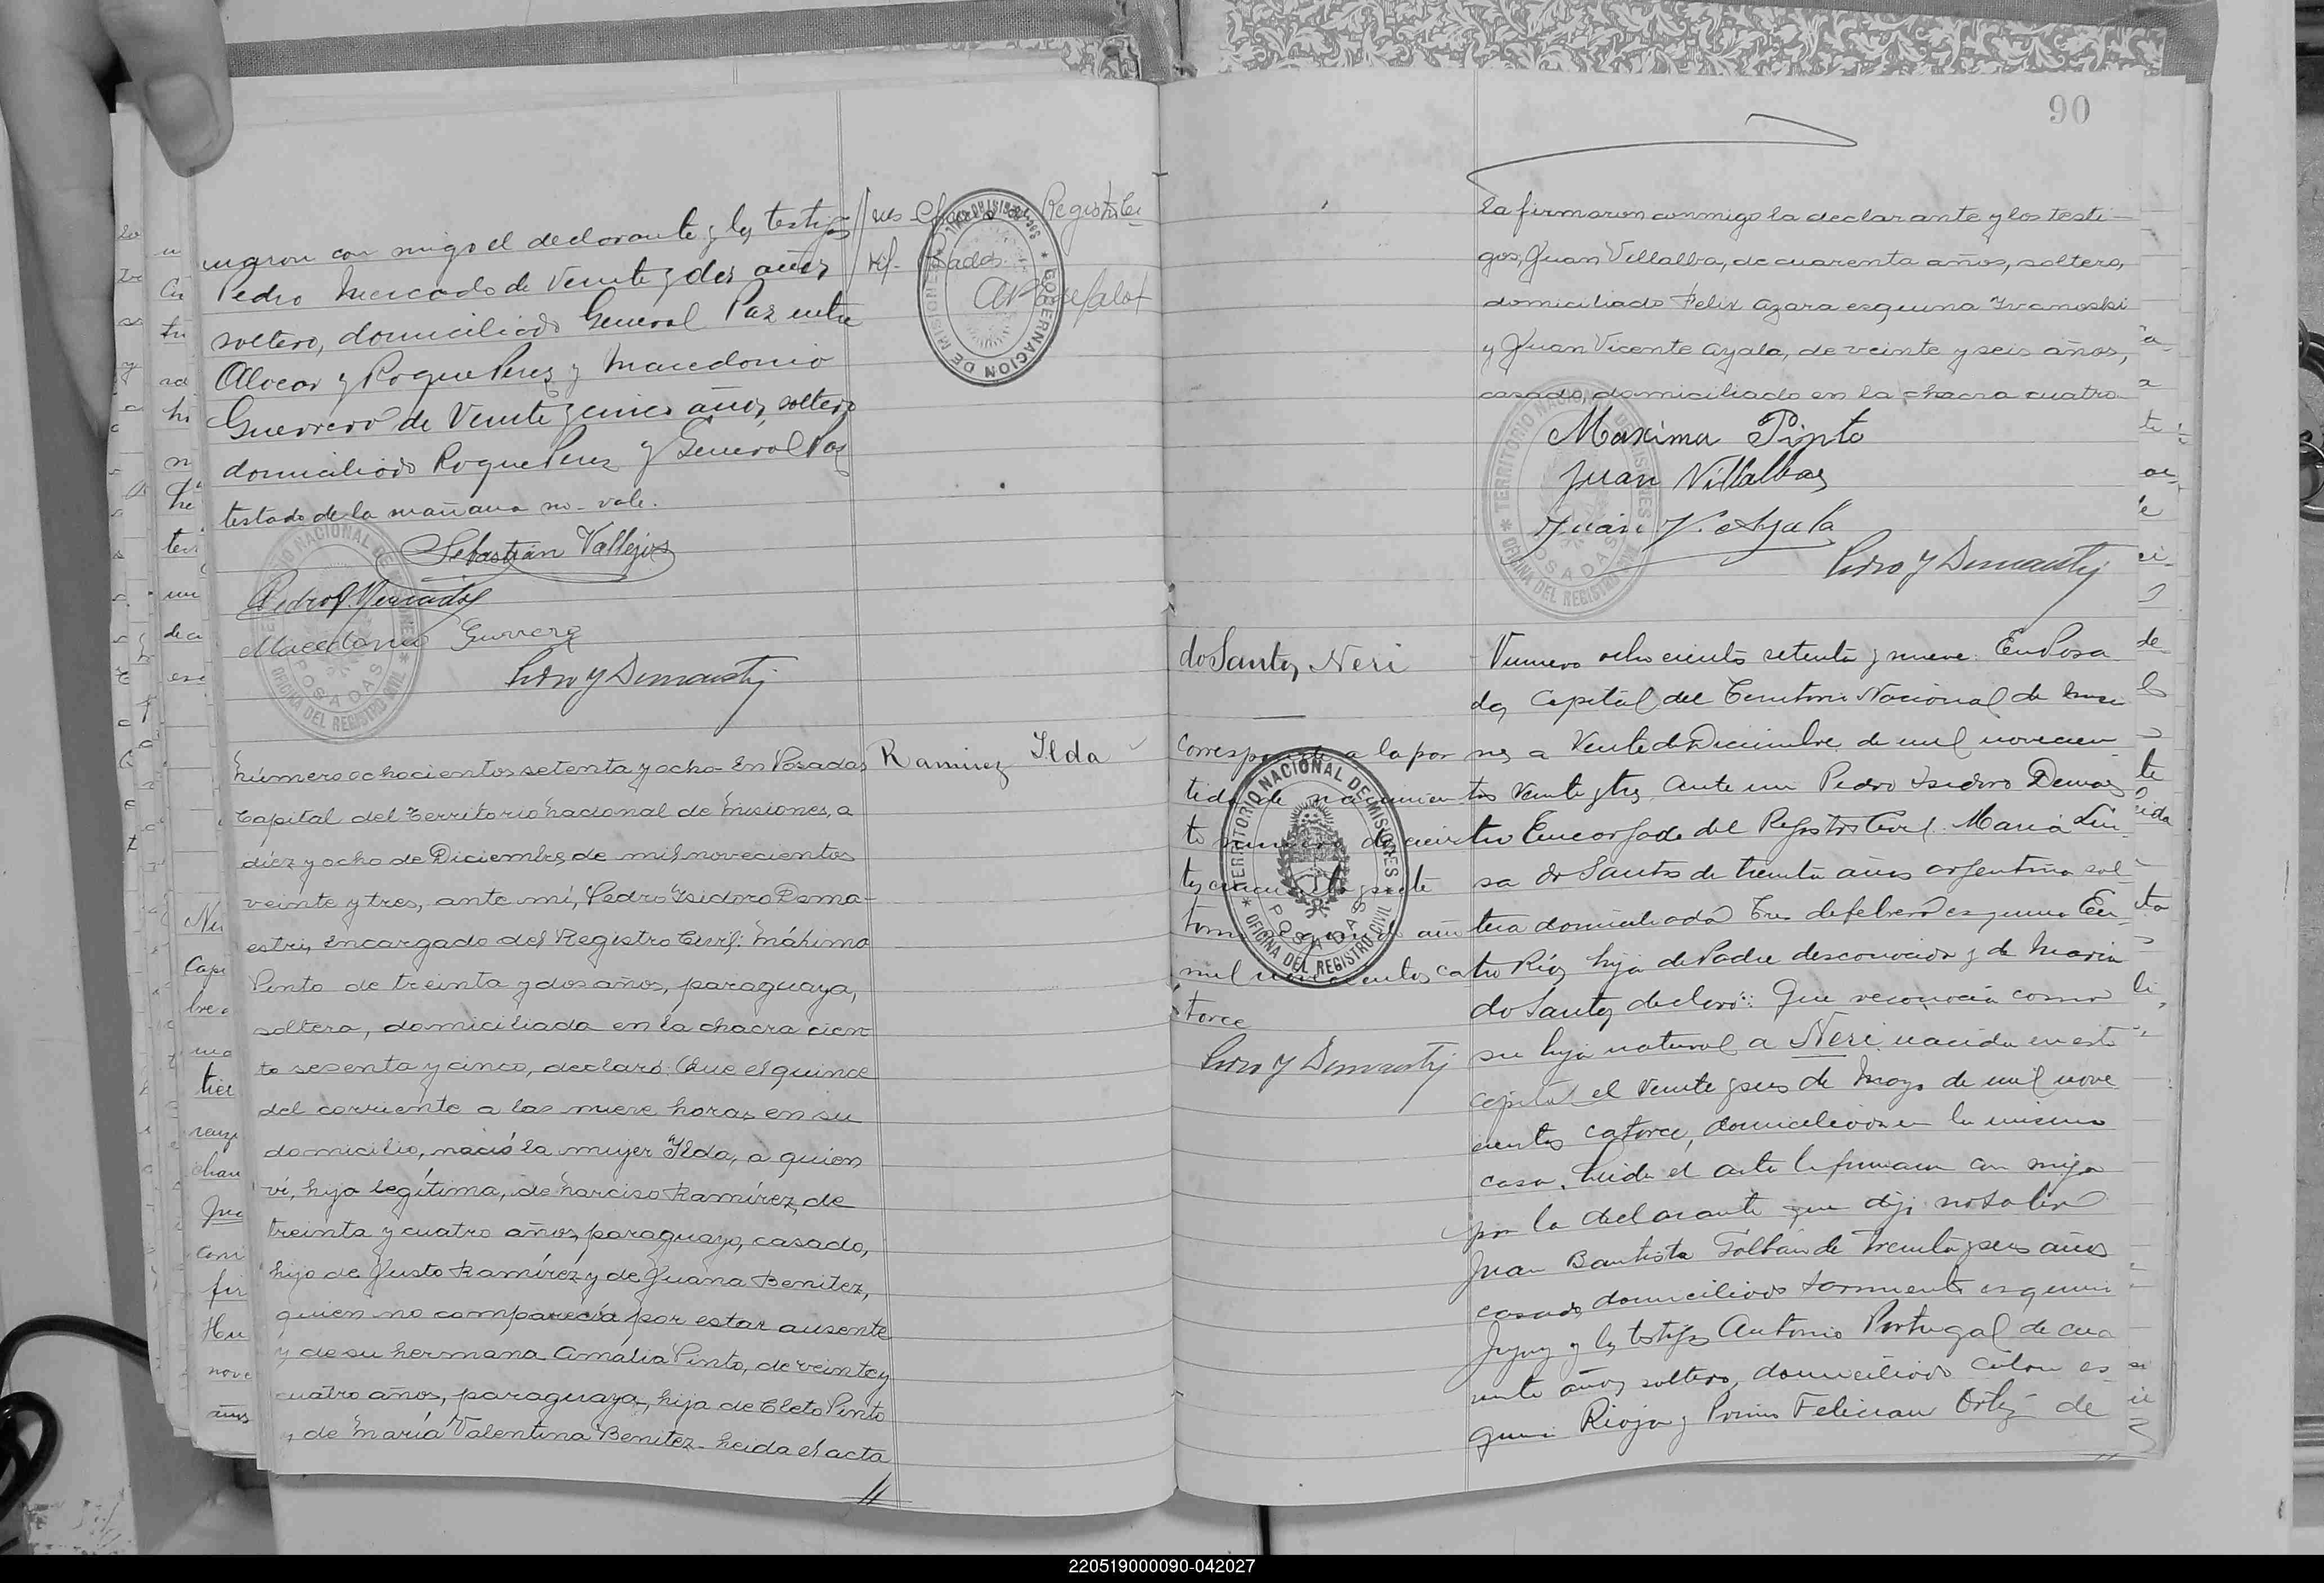 maron con migo el declarante y los testigos
Pedro Mercado de Veinte y dos años
soltero, domiciliado General Paz entre
Alvear y Roque Perez y Macedonio
Guerrero de Veinte y cinco años, soltero
domiciliado Roque Perez y General Paz
testado de la mañana no vale.
Sebastián Vallejos
Pedro Mercado
Macedonio Gurrero
Pedro Y Demaestri
TERRITORIO NACIONAL DE MISIONES
OFICINA DEL REGISTRO CIVIL
POSADAS
GOBERNACION DE MISIONES
Número ochocientos setenta y ocho En Posadas
Ramirez Ilda
Capital del Territorio Nacional de Misiones, a
diez y ocho de Diciembre de mil novecientos
veinte y tres, ante mí, Pedro Isidoro Dema-
estri, Encargado del Registro Civil: Máxima
Pinto de treinta y dos años, paraguaya,
soltera, domiciliada en la chacra cien
to sesenta y cinco, declaró: Que el quince
del corriente a las nueve horas en su
domicilio, nació la mujer Ilda, a quien
ví, hija legítima, de Narciso Ramírez, de
treinta y cuatro años, paraguayo, casado,
hijo de Justo Ramírez y de Juana Benitez,
quien no comparecía por estar ausente
y de su hermana Amalia Pinto, de veinte y
cuatro años, paraguaya, hija de Cleto Pinto
y de María Valentina Benitez. Leida el acta
//
90
la firmaron conmigo la declarante y los testi-
gos, Juan Villalba, de cuarenta años, soltero,
domiciliado Felix Azara esquina Ivanoski
y Juan Vicente Ayala, de veinte y seis años,
casado, domiciliado en la chacra cuatro
Maxima Pinto
Juan Villalba
Juan V. Ayala
Pedro Y Demaestri
TERRITORIO NACIONAL DE MISIONES
OFICINA DEL REGISTRO CIVIL
POSADAS
do Santos Neri
Corresponde a la par
tida de nacimien
to número doscien
tos cincuenta y siete
tomo segundo año
mil novecientos ca
torce
Pedro Y Demaestri
TERRITORIO NACIONAL DE MISIONES
OFICINA DEL REGISTRO CIVIL
POSADAS
Numero ocho cientos setenta y nueve: En Posa
das Capital del Territorio Nacional de Misio
nes a Veinte de Diciembre de mil novecien
tos Veinte y tres Ante mi Pedro Isidoro Demaes
tri Encargado del Registro Civil: María Lui
sa do Santos de treinta años argentina sol
tera domiciliada Tres de febrero esquina En
tre Ríos hija de Padre desconocido y de Maria
do Santos declaró: Que reconocía como
su hija natural a Neri nacida en esta
capital el Veinte y seis de Mayo de mil nove
cientos catorce, domiciliada en la misma
casa. Leida el acta la firmaron con migo
por la declarante que dijo no saber
Juan Bautista Galbán de treinta y seis años
casado, domiciliado Sarmiento esquina
Jujuy y los testigos Antonio Portugal de cua
renta años soltero, domiciliado Colon es
quina Rioja y Primo Felician Ortiz de
220519000090-042027